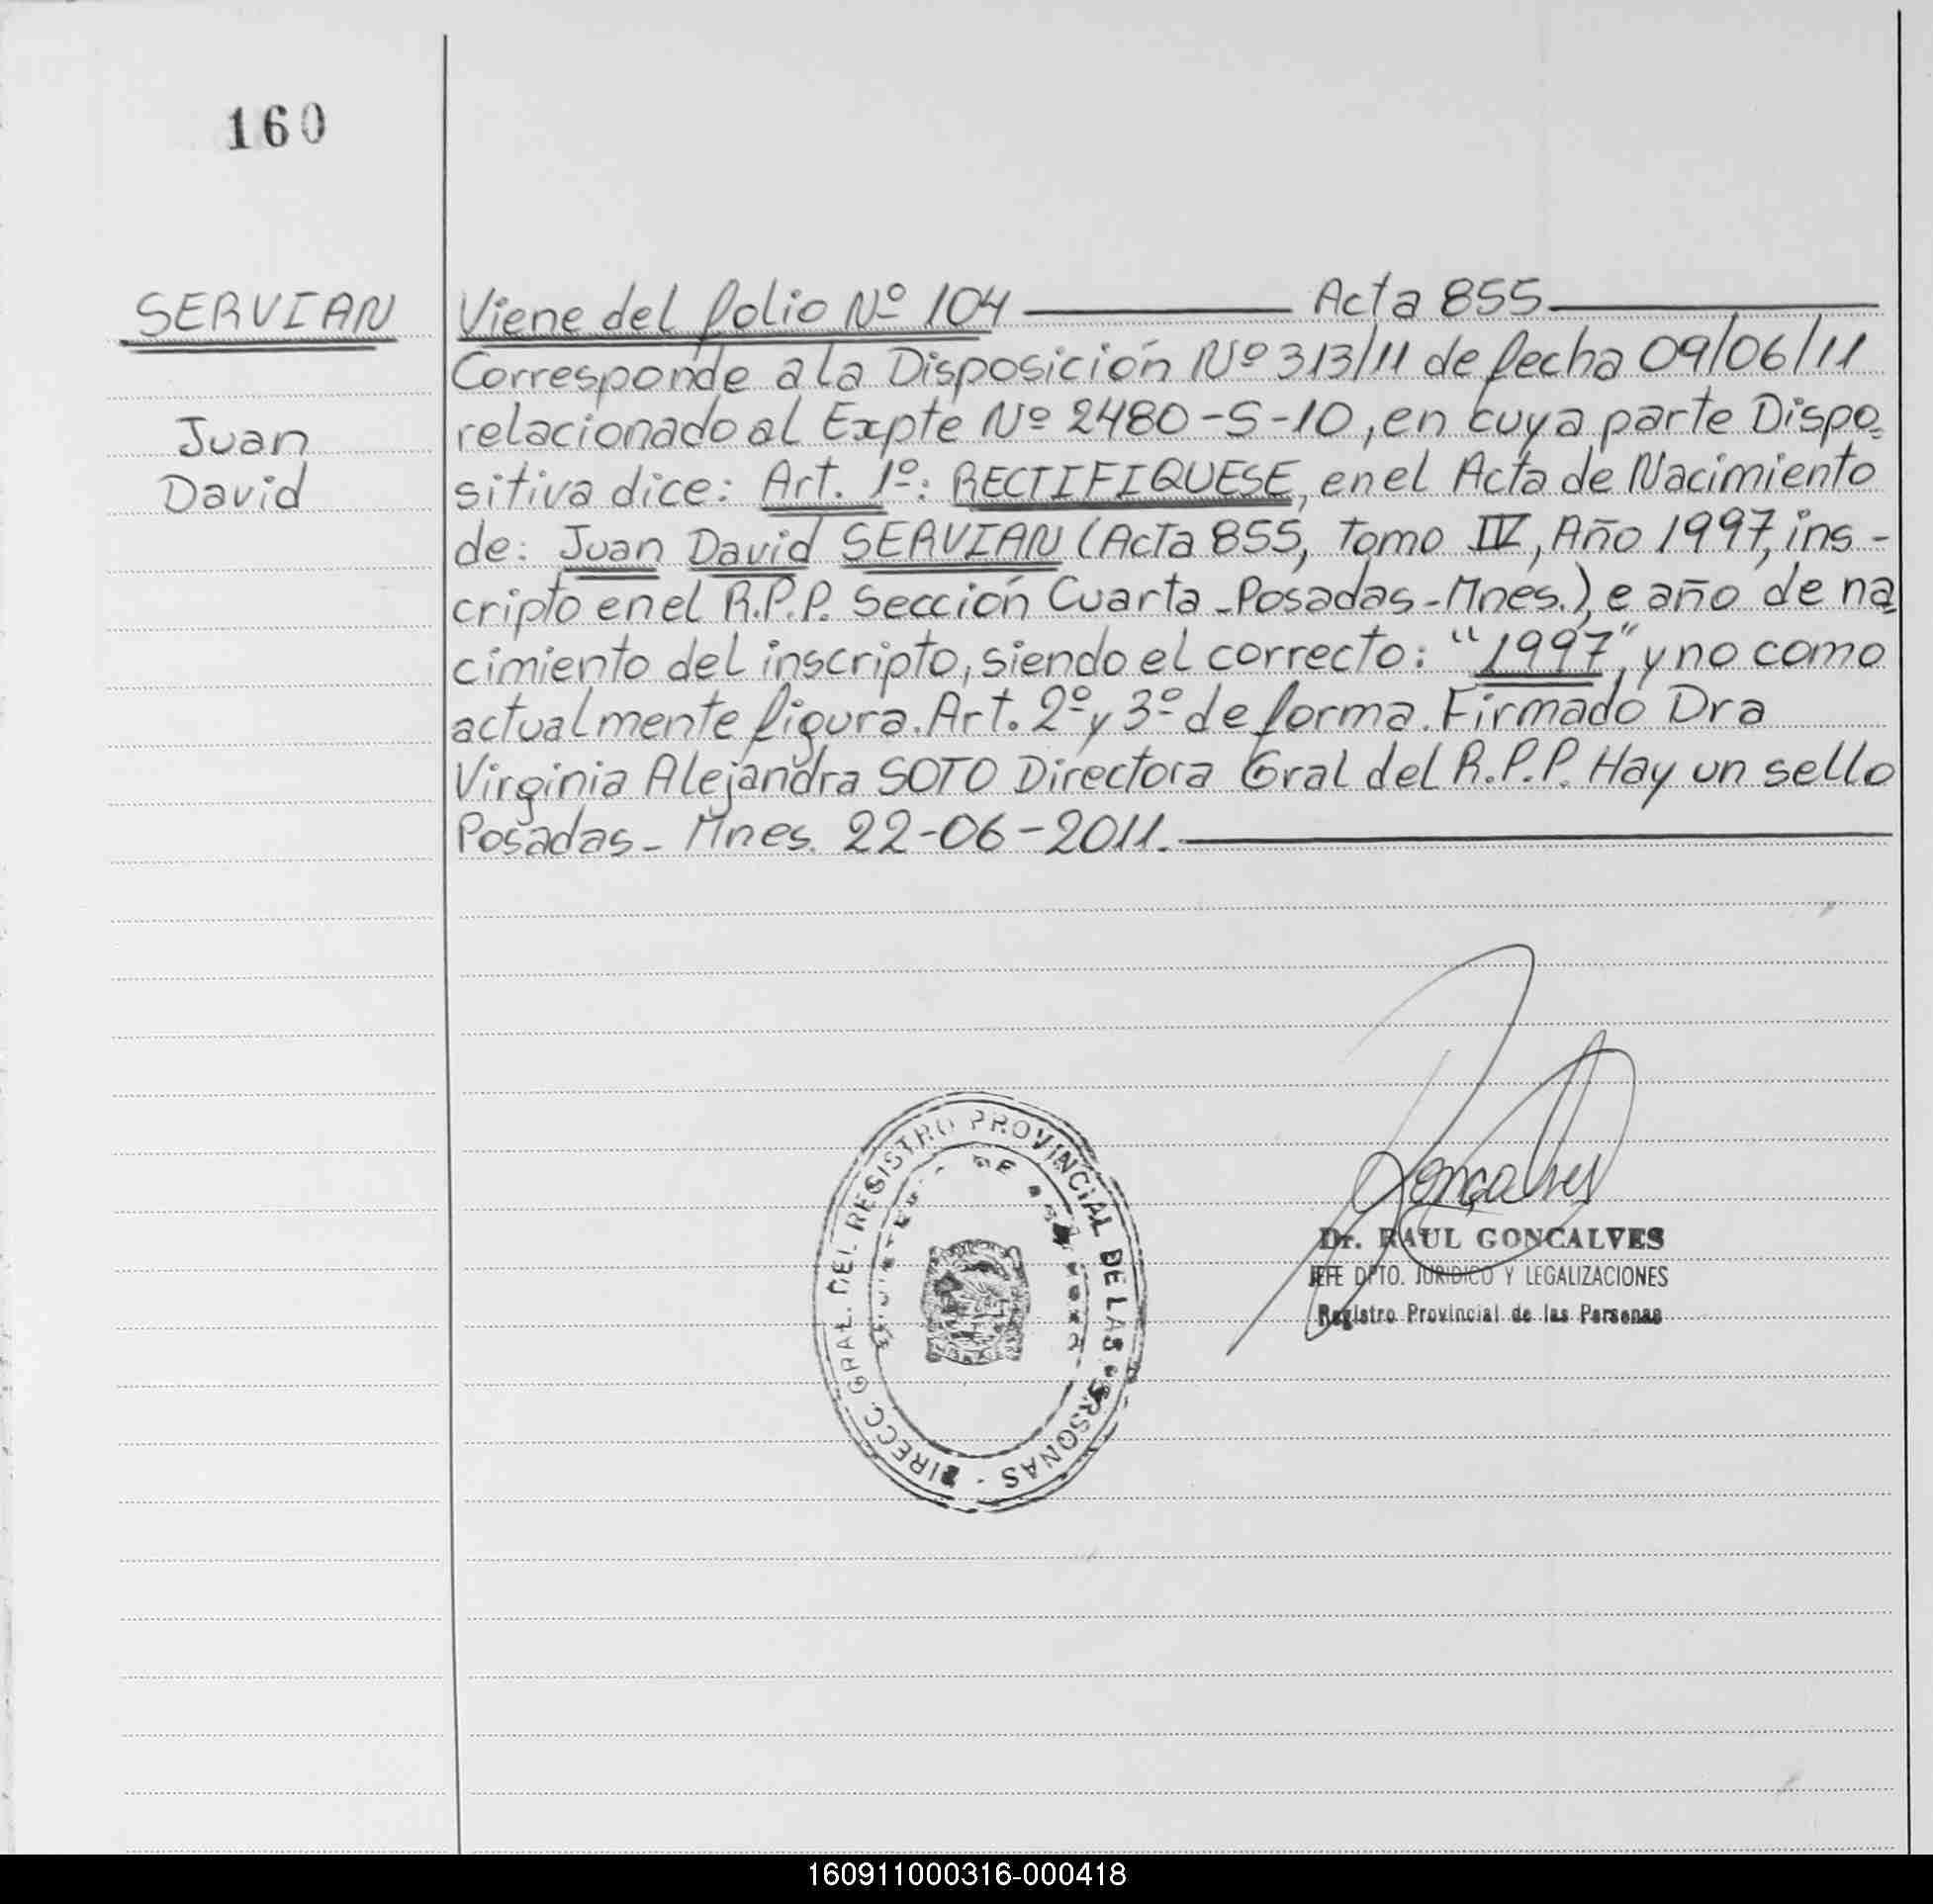 160
SERVIAN
Juan
David
Viene del folio Nº 104 Acta 855
Corresponde a la Disposición Nº 313/11 de fecha 09/06/11
relacionado al Expte Nº 2480-S-10, en cuya parte Dispo-
sitiva dice: Art. 1º: RECTIFIQUESE, en el Acta de Nacimiento
de: Juan David SERVIAN (Acta 855, Tomo IV, Año 1997, ins-
cripto en el R.P.P. Sección Cuarta - Posadas - Mnes.), e año de na-
cimiento del inscripto, siendo el correcto: "1997", y no como
actualmente figura. Art. 2º y 3º de forma. Firmado Dra
Virginia Alejandra SOTO Directora Gral del R.P.P. Hay un sello
Posadas - Mnes. 22-06-2011.
DIRECC. GRAL. DEL REGISTRO PROVINCIAL DE LAS PERSONAS -
DE
Goncalves
Dr. RAUL GONCALVES
JEFE DPTO. JURIDICO Y LEGALIZACIONES
Registro Provincial de las Personas
160911000316-000418